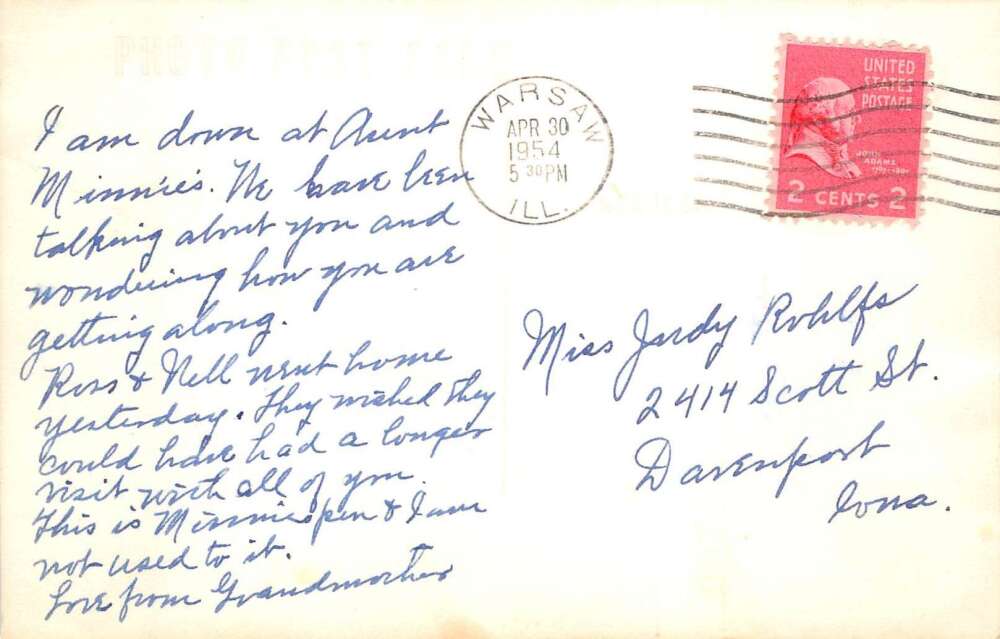 I am down at Aunt
Minnie's. We have been
talking about you and
wondering how you are
getting along.
Ross & Nell went home
yesterday. They wished they
could have had a longer
visit with all of you.
This is Minnies pen & I am
not used to it.
Love from Grandmother
WARSAW
APR 30
1954
5 30 PM
ILL.
UNITED
STATES
POSTAGE
JOHN
ADAMS
2 CENTS 2
Miss Judy Rohlfs
2414 Scott St.
Davenport
Iowa.